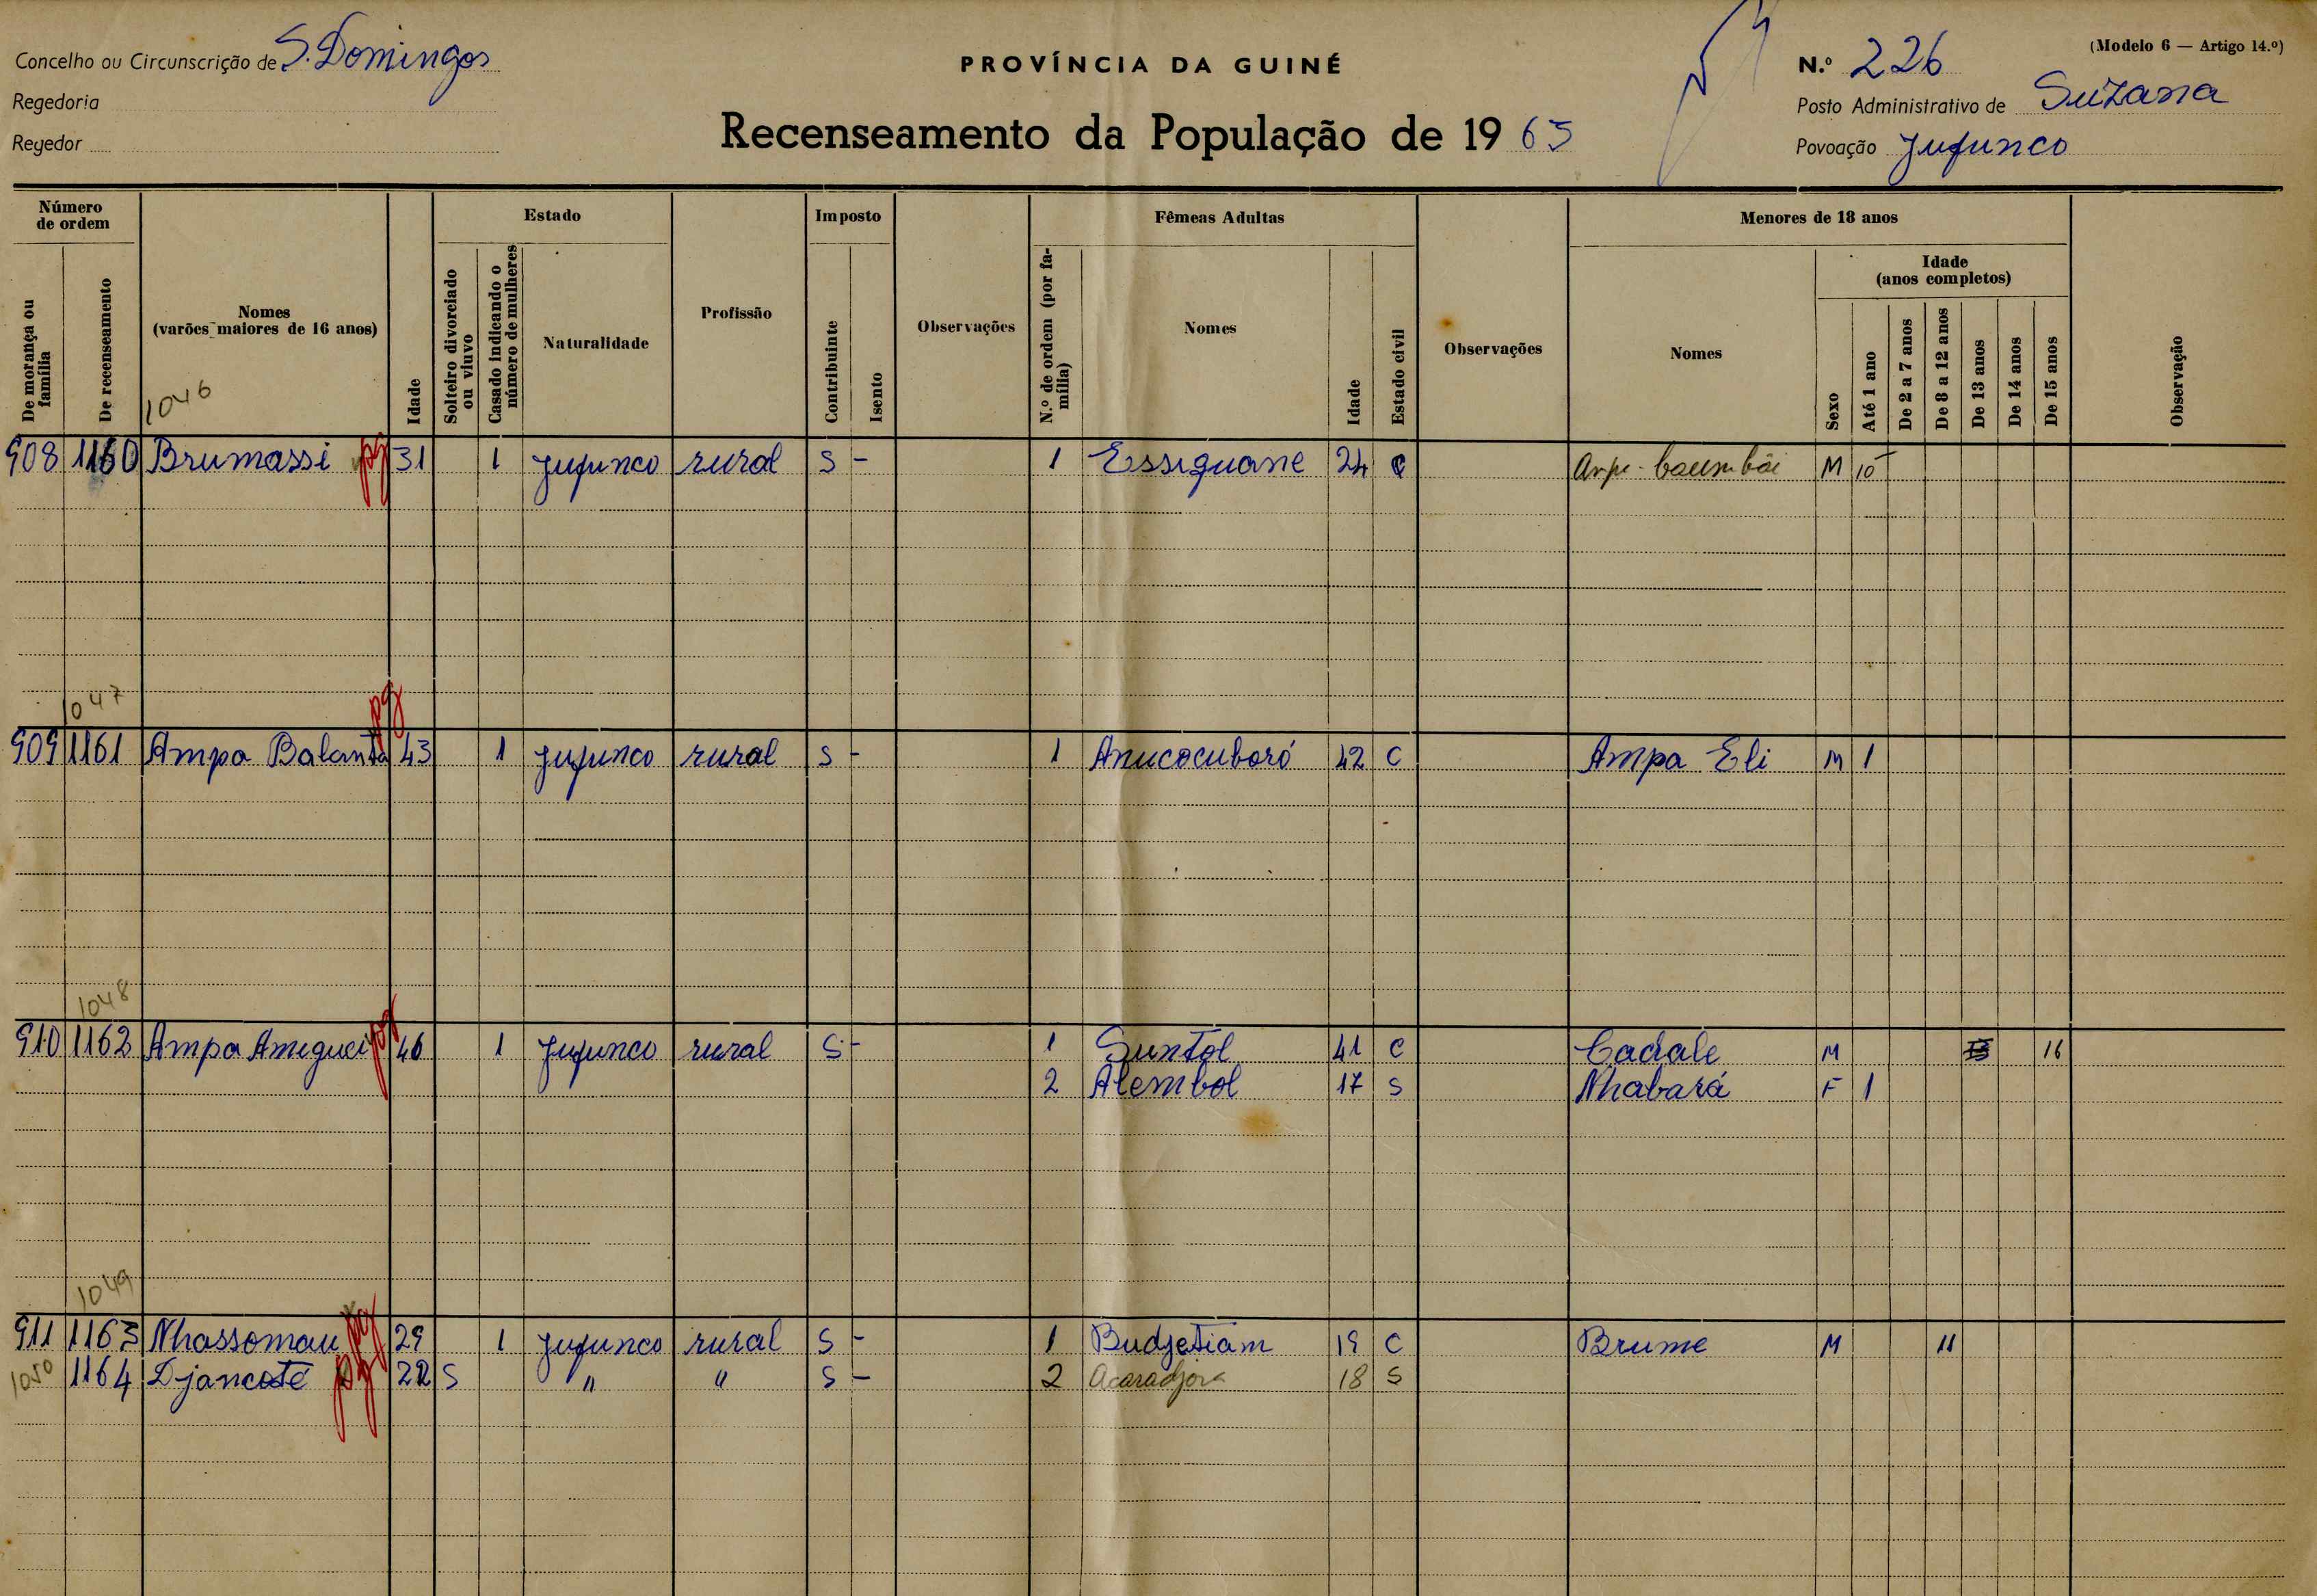 Concelho ou Circunscrição de S. Domingos
Regedoria
Regedor
PROVÍNCIA DA GUINÉ
Recenseamento da População de 1965
(Modelo 6 — Artigo 14.º)
N.º 226
Posto Administrativo de Suzana
Povoação Jufunco
Número de ordem
De morança ou família
De recenseamento
Nomes
(varões maiores de 16 anos)
1046
Idade
Estado
Solteiro divorciado ou viuvo
Casado indicando o número de mulheres
Naturalidade
Profissão
Imposto
Contribuinte
Isento
Observações
Fêmeas Adultas
N.º de ordem (por família)
Nomes
Idade
Estado civil
Observações
Menores de 18 anos
Nomes
Sexo
Idade
(anos completos)
Até 1 ano
De 2 a 7 anos
De 8 a 12 anos
De 13 anos
De 14 anos
De 15 anos
Observação
908 1160 Brumassi pg 31 1 Jufunco rural S - 1 Essiguane 24 C M
1047 pg
909 1161 Ampa Balanta 43 1 Jufunco rural S - 1 Anucocuboró 42 C Ampa Eli M 1
1048
910 1162 Ampa Ameguei pg 46 1 Jufunco rural S - 1 Suntol 41 C Cadale M 16
2 Alembol 17 S Nhabará F 1
1049
911 1163 Nhassomau pg 29 1 Jufunco rural S - 1 Budjetiam 19 C Brume M 11
1050 1164 Djancoté pg 22 S " " S - 2 Acaradjora 18 S